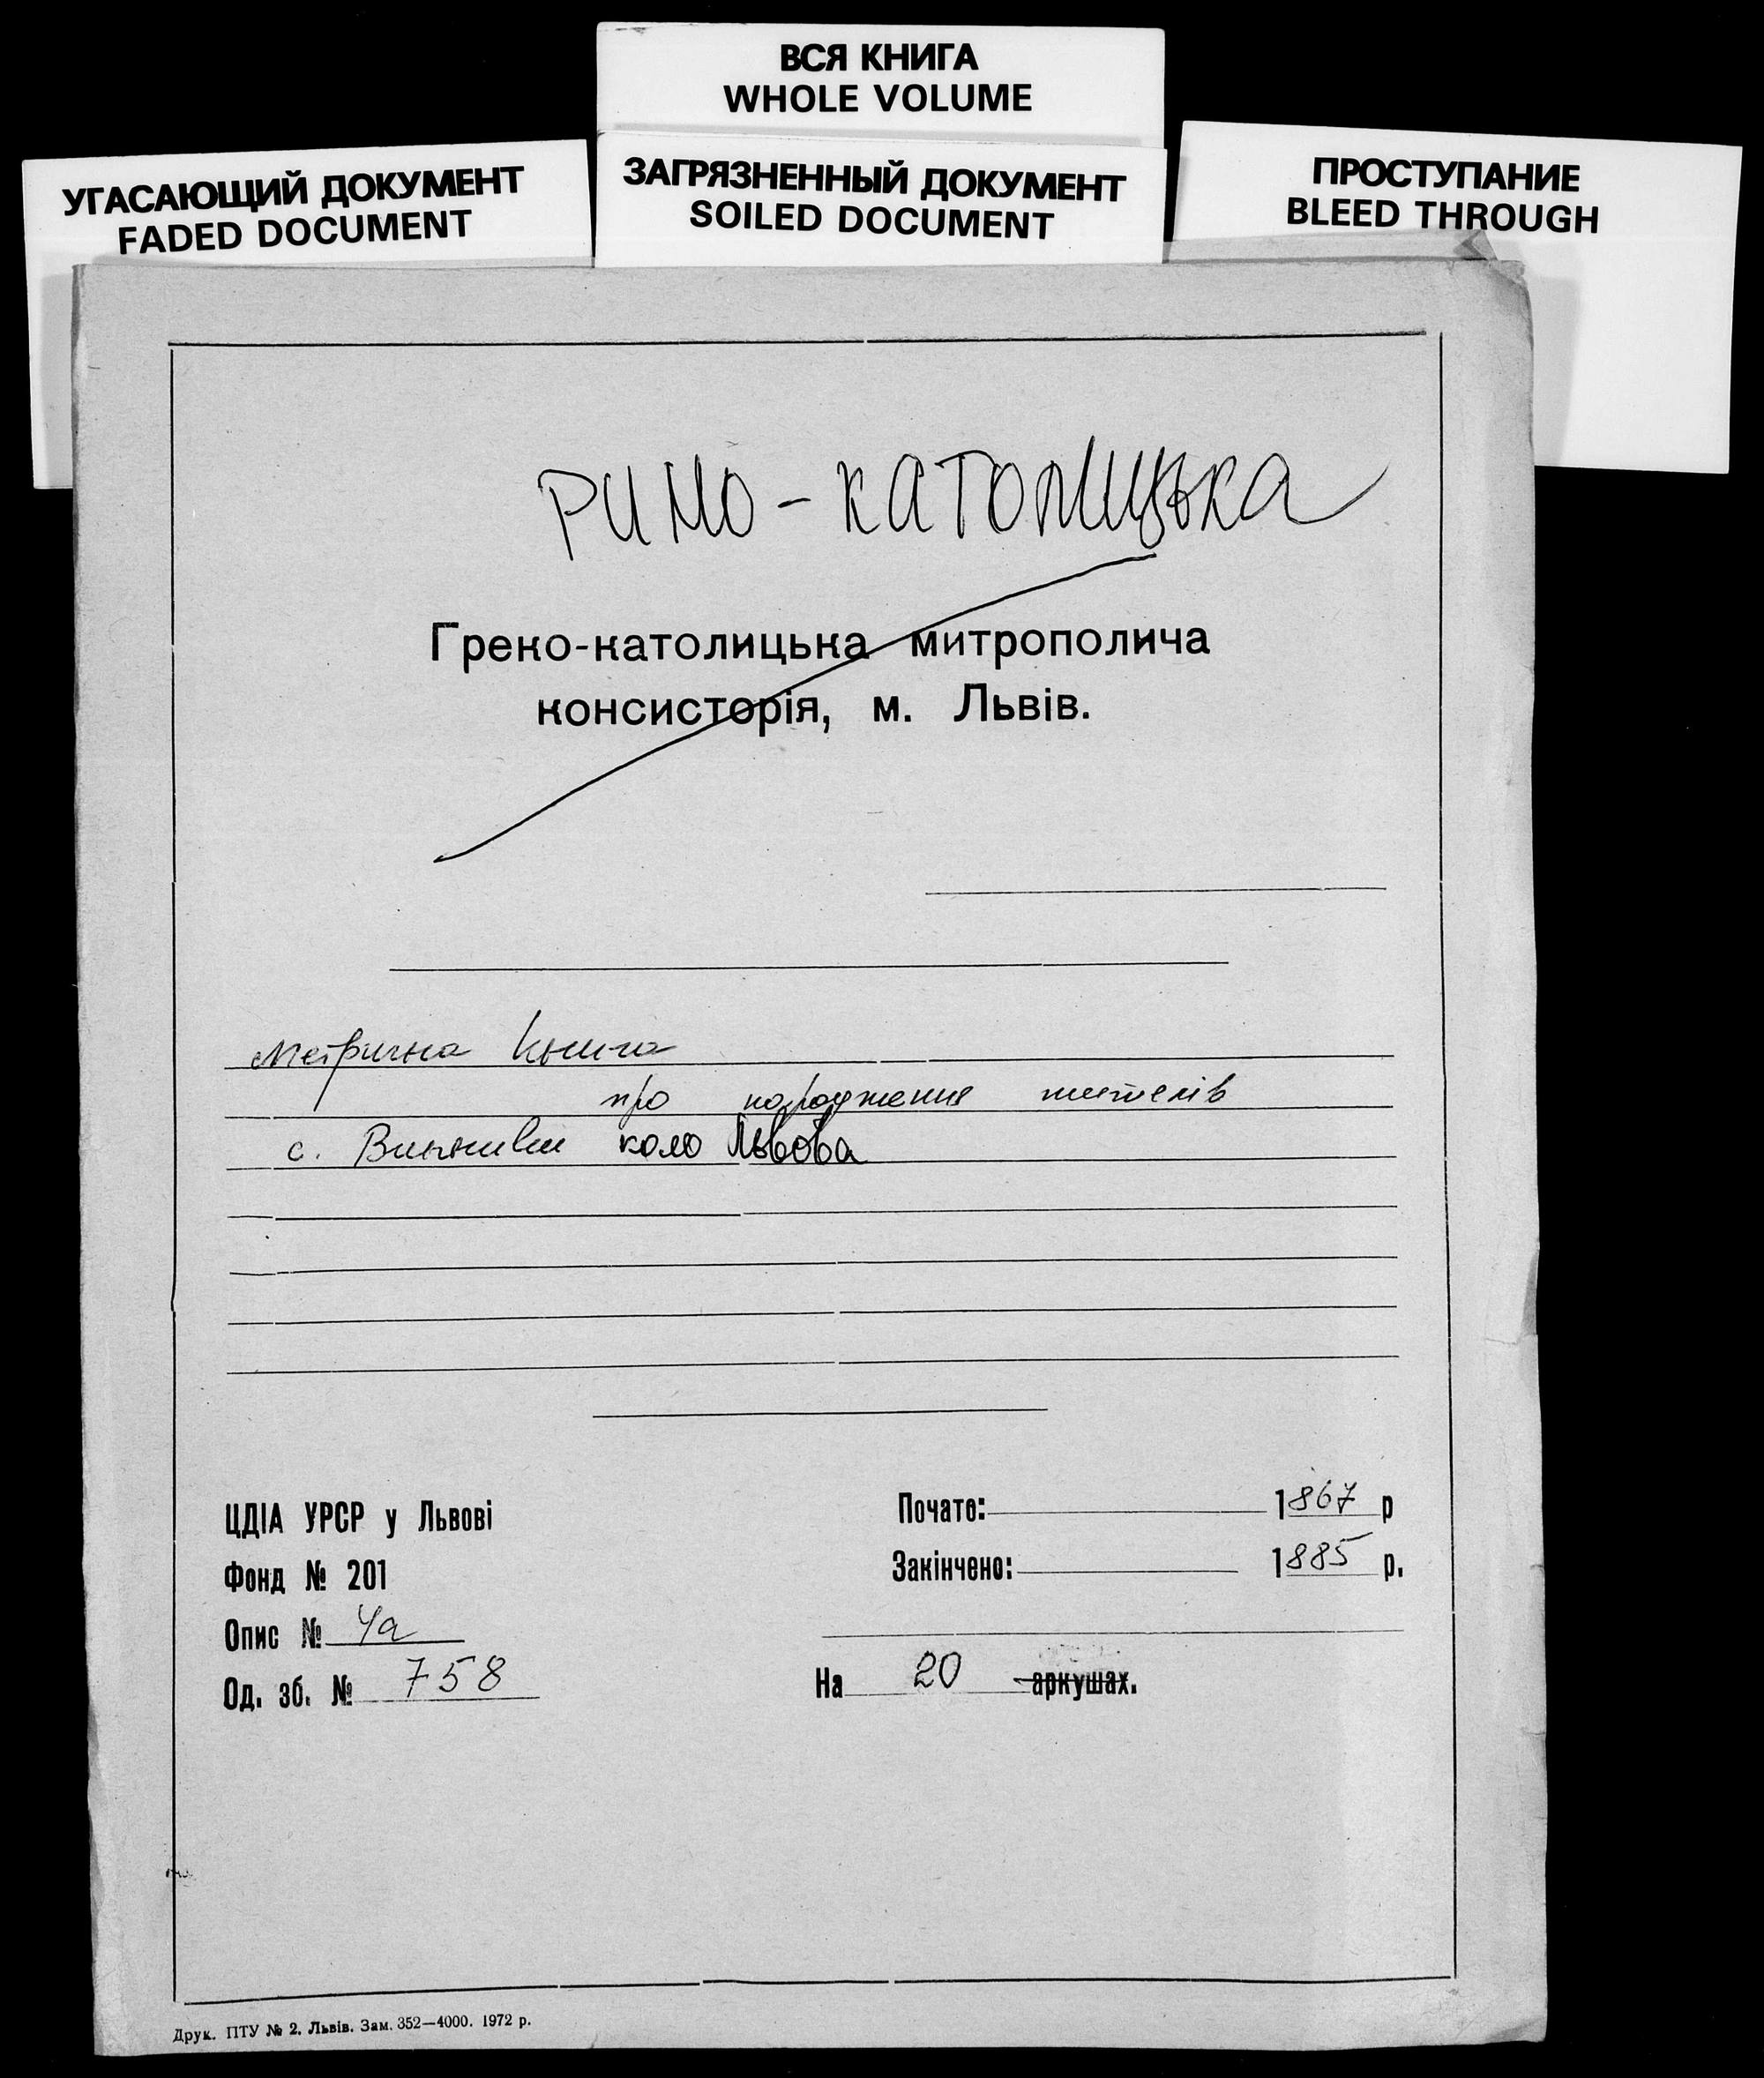 ВСЯ КНИГА
WHOLE VOLUME
УГАСАЮЩИЙ ДОКУМЕНТ
FADED DOCUMENT
ЗАГРЯЗНЕННЫЙ ДОКУМЕНТ
SOILED DOCUMENT
ПРОСТУПАНИЕ
BLEED THROUGH
РИМО-КАТОЛИЦЬКА
Греко-католицька митрополича
консисторія, м. Львів.
Метрична книга
про народження жителів
с. коло Львова
ЦДІА УРСР у Львові
Фонд № 201
Опис № 4а
Од. зб. № 758
Почато: 1867 р
Закінчено: 1885 р.
На 20 аркушах.
Друк. ПТУ № 2. Львів. Зам. 352—4000. 1972 р.